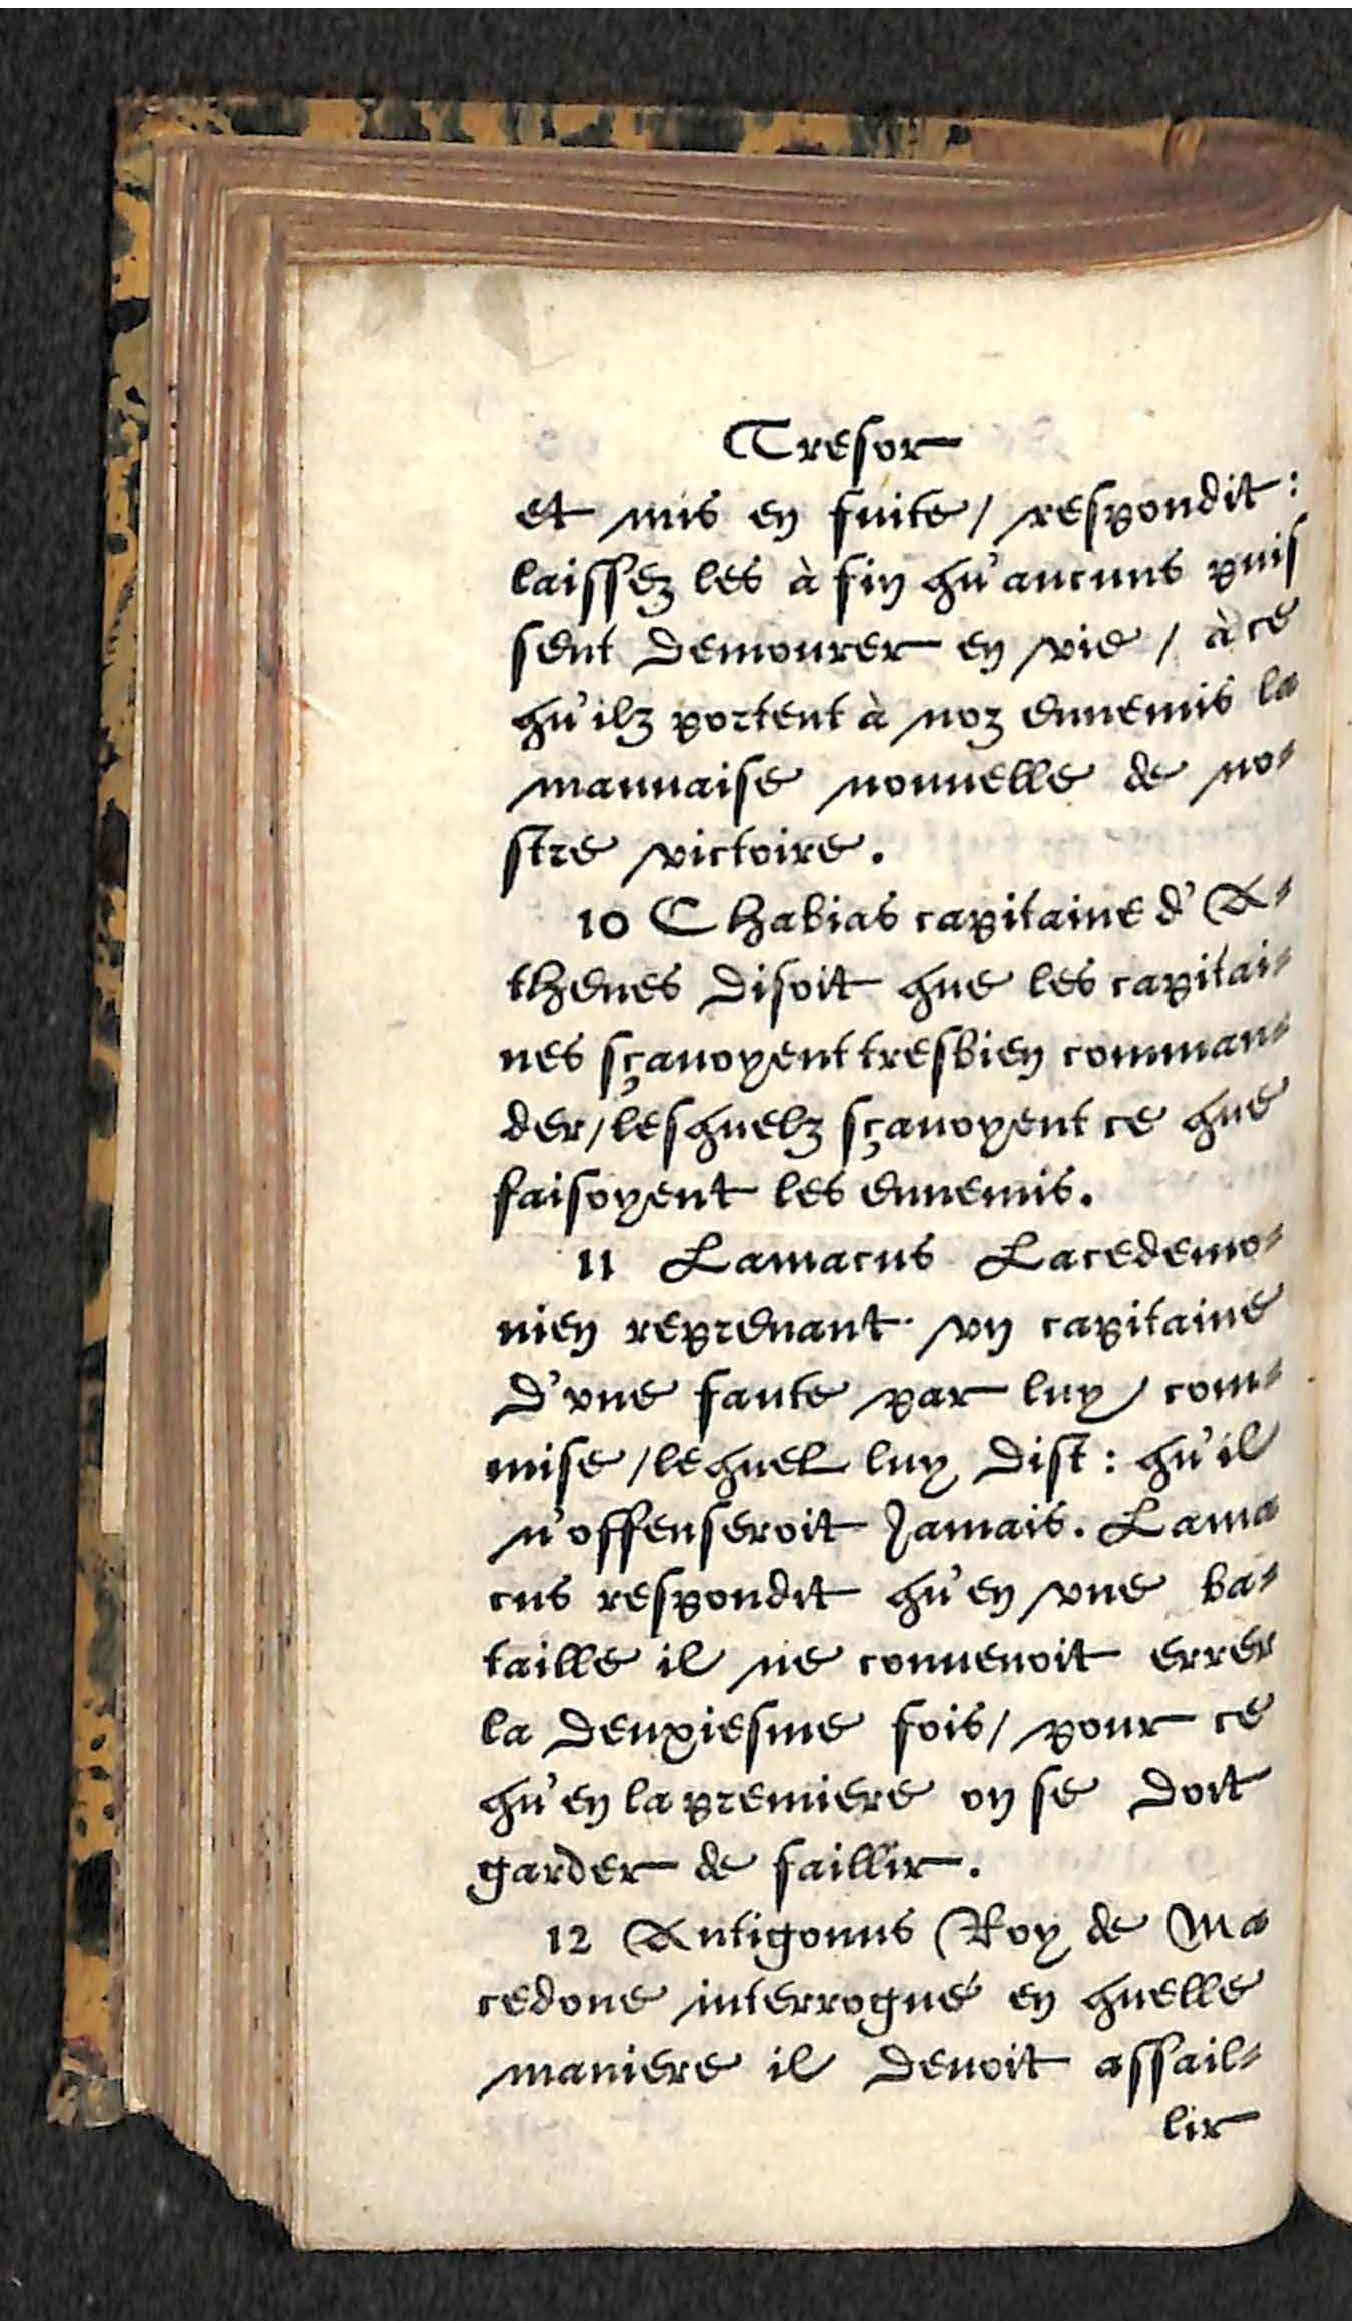 Tresor
et mis en fuite / respondit :
laissez les à fin qu'aucuns puis
sent demourer en vie / à ce
qu'ilz portent à noz ennemis la
mauuaise nouuelle de no-
stre victoire.
10 Chabias capitaine d'A-
thenes disoit que les capitai-
nes sçauoyent tresbien comman-
der / lesquelz sçauoyent ce que
faisoyent les ennemis.
11 Lamacus Lacedemo-
nien reprenant vn capitaine
d'vne faute par luy com-
mise / lequel luy dist : qu'il
n'offenseroit Jamais. Lama
cus respondit qu'en vne ba-
taille il ne conuenoit errer
la deuxiesme fois / pour ce
qu'en la premiere on se doit
garder de faillir.
12 Antigonus Roy de Ma
cedone interrogué en quelle
maniere il deuoit assail-
lir